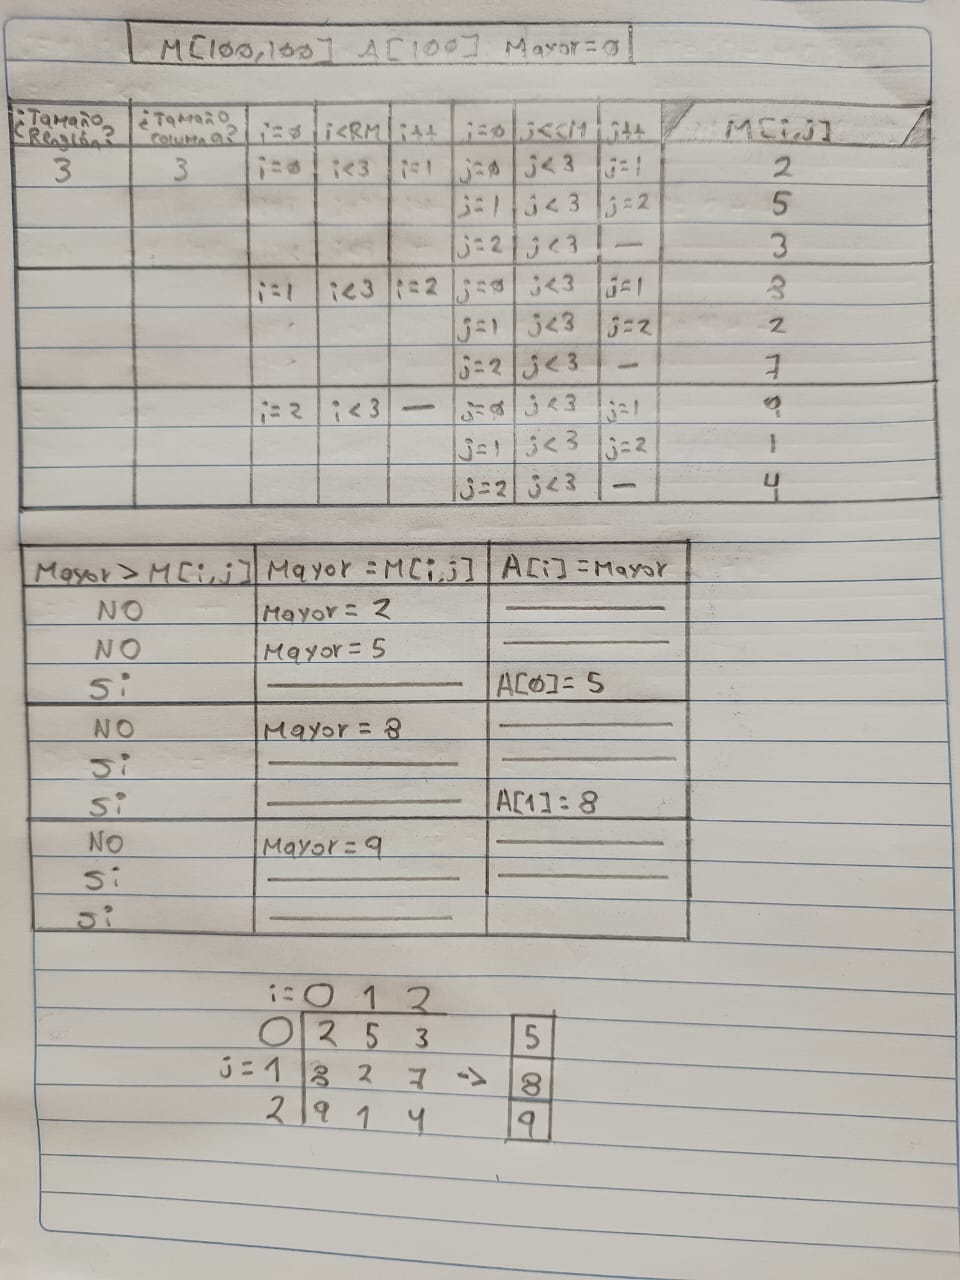 M[100,100] A[100] Mayor=0
¿Tamaño Renglón? ¿Tamaño columna? i=0 i<RM i++ j=0 j<CM j++ M[i,j]
3 3 i=0 i<3 i=1 j=0 j<3 j=1 2
j=1 j<3 j=2 5
j=2 j<3 — 3
i=1 i<3 i=2 j=0 j<3 j=1 8
j=1 j<3 j=2 2
j=2 j<3 — 7
i=2 i<3 — j=0 j<3 j=1 9
j=1 j<3 j=2 1
j=2 j<3 — 4
Mayor > M[i,j] Mayor = M[i,j] A[i]=Mayor
NO Mayor = 2 —
NO Mayor = 5 —
Si — A[0]= 5
NO Mayor = 8 —
Si — —
Si — A[1]= 8
NO Mayor = 9 —
Si — —
Si —
i= 0 1 2
0 2 5 3 5
j= 1 8 2 7 -> 8
2 9 1 4 9